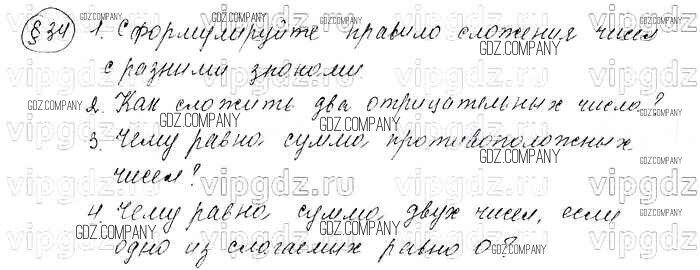 § 34 1. Сформулируйте правило сложения чисел
с разными знаками
2. Как сложить два отрицательных числа?
3. Чему равна сумма противоположных
чисел?
4. Чему равна сумма двух чисел, если
одно из слагаемых равно 0?
GDZ.COMPANY
vipgdz.ru